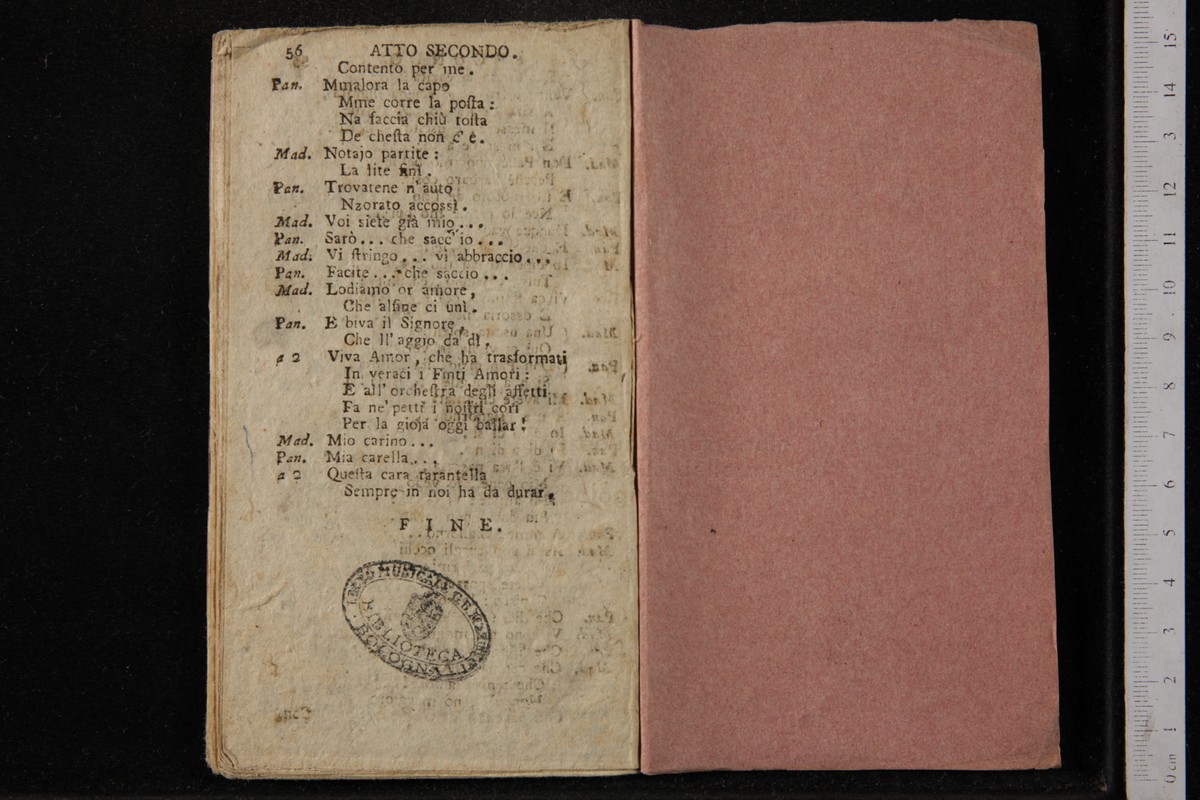 56 ATTO SECONDO.
Contento per me.
Pan. Mmalora la capo
Mme corre la poſta:
Na faccia chiù toſta
De cheſta non c'è.
Mad. Notajo partite:
La lite finì.
Pan. Trovatene n'auto
Nzorato accossì.
Mad. Voi siete già mio...
Pan. Sarò... che sacc'io...
Mad. Vi ſtringo... vi abbraccio...
Pan. Facite... che saccio...
Mad. Lodiamo or amore,
Che alfine ci unì.
Pan. E biva il Signore,
Che ll'aggio da dì.
a 2 Viva Amor, che ha trasformati
In veraci i Finti Amori:
E all'orcheſtra degli affetti
Fa ne' petti i noſtri cori
Per la gioja oggi ballar!
Mad. Mio carino...
Pan. Mia carella...
a 2 Queſta cara tarantella
Sempre in noi ha da durar.
FINE.
LICEO MUSICALE
BIBLIOTECA
BOLOGNA
0 cm 1 2 3 4 5 6 7 8 9 10 11 12 3 14 15